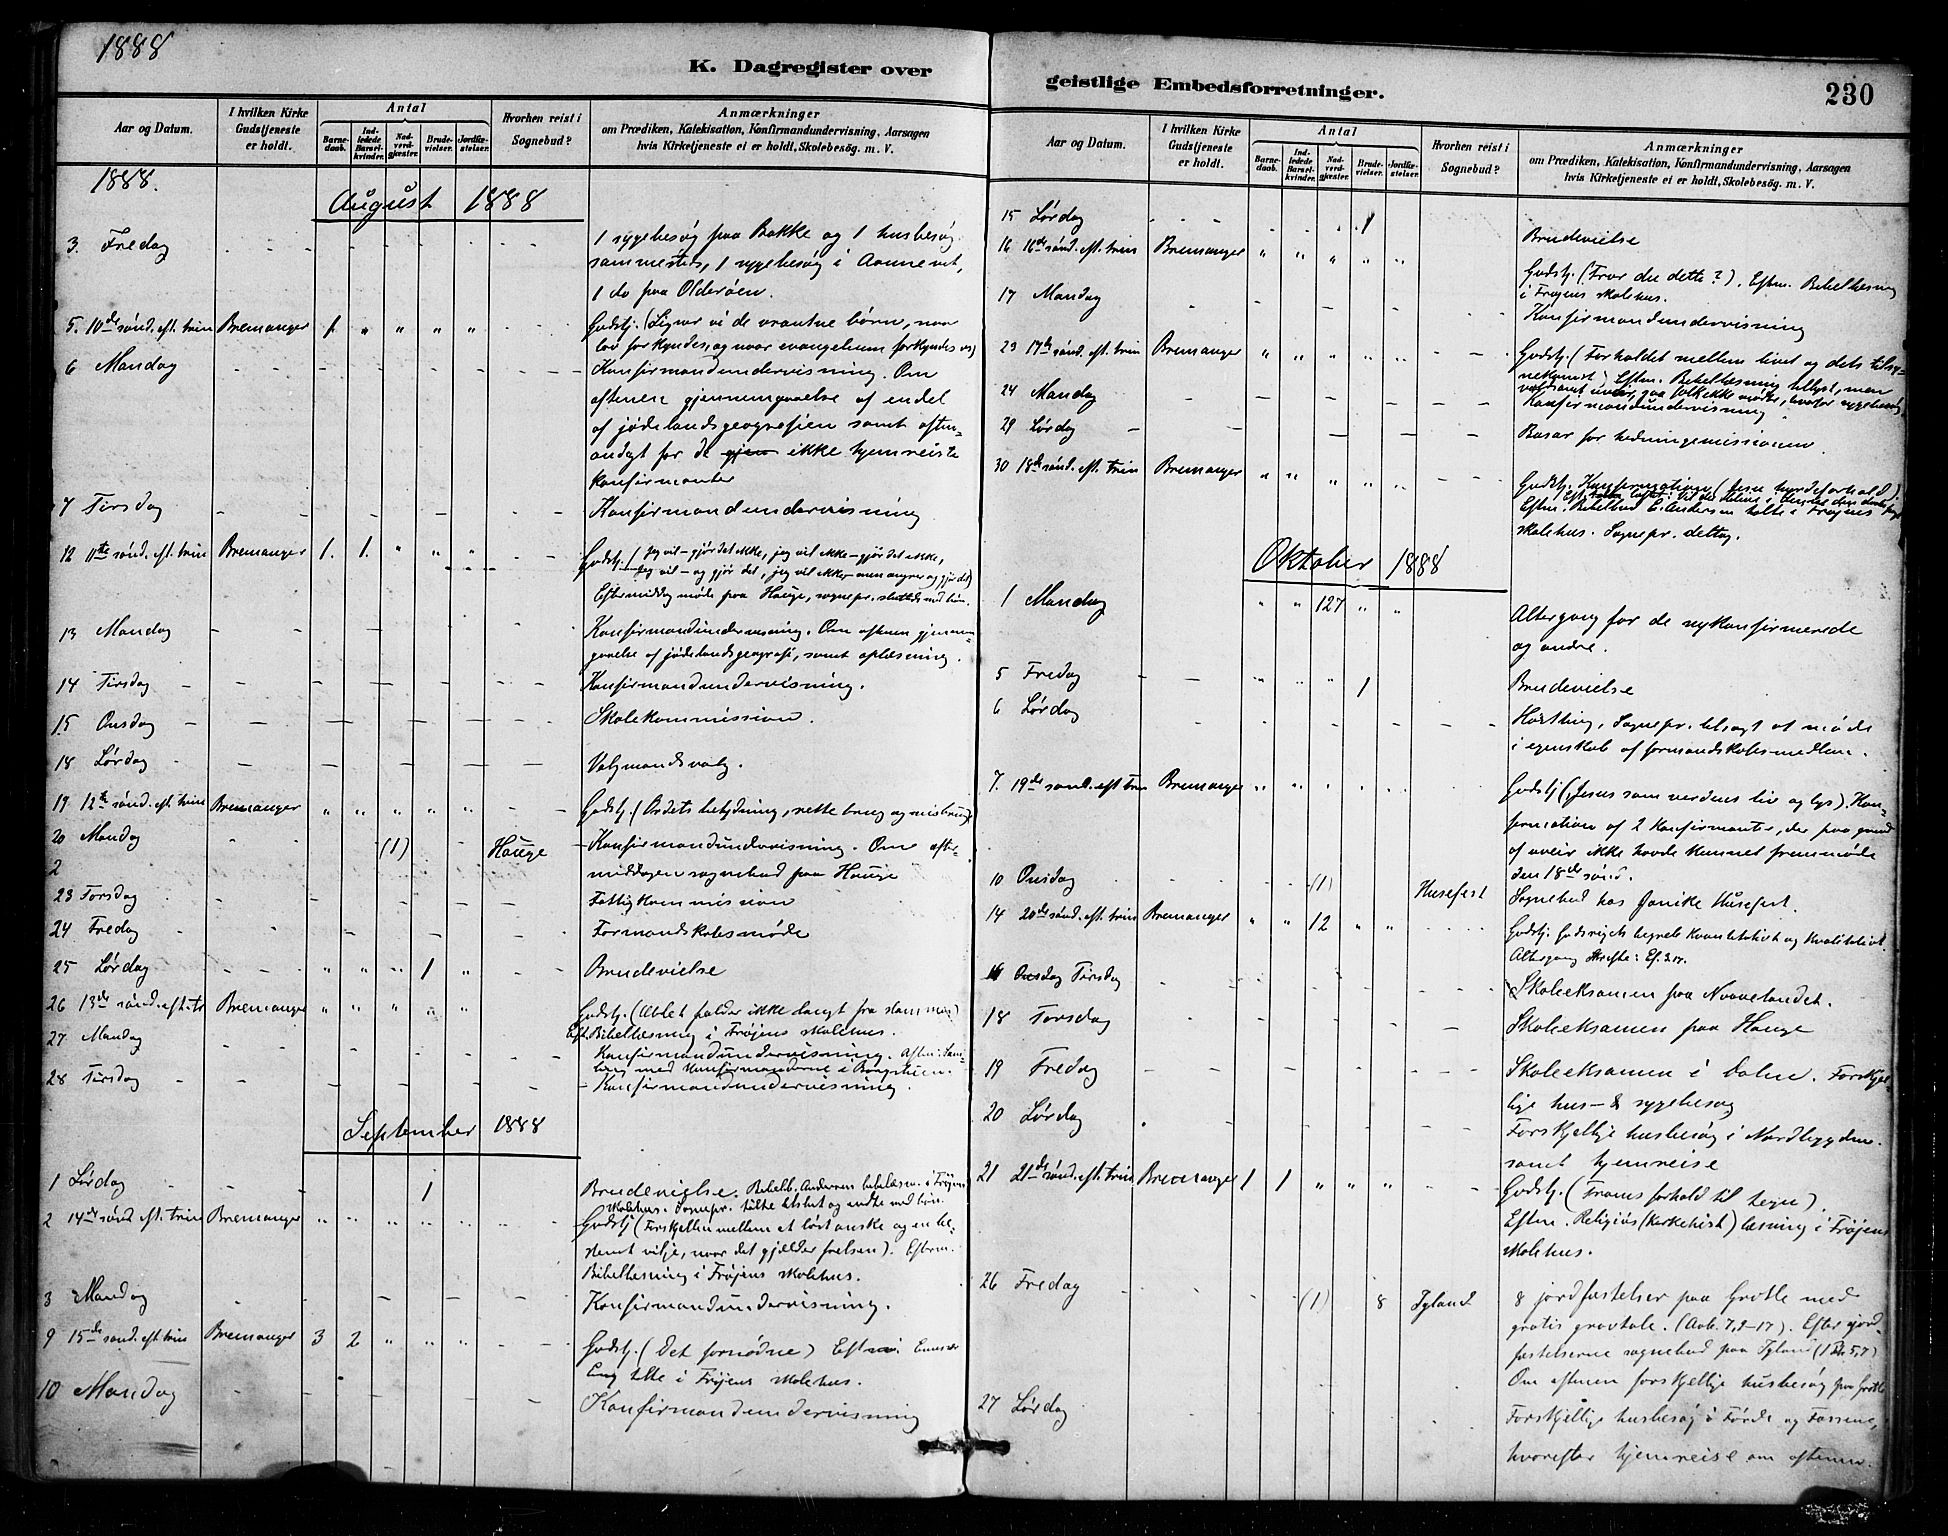 1888
K. Dagregister over
Aar og Datum.
I hvilken Kirke Gudstjeneste er holdt.
Antal
Barnedaab.
Indledede Barselkvinder.
Nadverdgjæster.
Brudevielser.
Jordfæstelser.
Hvorhen reist i Sognebud?
Anmærkninger
om Prædiken, Katekisation, Konfirmandundervisning, Aarsagen
hvis Kirketjeneste ei er holdt, Skolebesøg. m. V.
1888.
August 1888
3. Fredag - - 1 sygebesøg paa Bakke og 1 husbesøg
sammesteds, 1 sygebesøg i
1 do paa Olderøen.
5. 10de sønd. eft. trin Bremanger 1 " " " " Gudstj. (Ligner vi de vrantne børn, naar
lov forkyndes, og naar evangelium forkyndes os)
6 Mandag Konfirmandundervisning. Om
aftenen gjennemgaaelse af endel
af jødelandsgeografien samt aften-
andagt for de gjen ikke hjemreiste
konfirmanter
7 Tirsdag Konfirmandundervisning
12 11te sønd. eft. trin Bremanger 1. 1. " " " Gudstj. (Jeg vil - gjør det ikke, jeg vil ikke - gjør det ikke,
Jeg vil - og gjør det, jeg vil ikke - men angrer og gjør det)
Eftermiddag møde paa Hauge, sognepr. sluttede med bøn.
13 Mandag Konfirmandundervisning. Om aftenen gjennem-
gaaelse af jødelandsgeografi, samt oplæsning.
14 Tirsdag Konfirmandundervisning.
15 Onsdag Skolekommission.
18 Lørdag Valgmandsvalg.
19 12te sønd. eft. trin Bremanger " " " " " Gudstj. (Ordets betydning, rette brug og misbrug)
20 Mandag (1) Hauge Konfirmandundervisning. Om efter-
2 middagen sognebud paa Hauge
23 Torsdag Fattigkommission
24 Fredag Formandskabsmøde
25 Lørdag " " " 1 " Brudevielse
26 13de sønd. eft. tr Bremanger " " " " " Gudstj. (Æblet falder ikke langt fra stammen)
Eft. Bibellæsning i Frøjens skolehus.
27 Mandag Konfirmandundervisning. Aften: Sam-
med konfirmanderne i
28 Tirsdag Konfirmandundervisning.
September 1888
1 Lørdag 1 Brudevielse. Bibelb. Andersen bibellæsn. i Frøjens
skolehus. Sognepr. talte tilslut og endte med bøn.
2 14de sønd. eft. trin Bremanger " " " " " Gudstj (Forskjellen mellem et løst ønske og en be-
stemt vilje, naar det gjælder frelsen). Efterm.
Bibellæsning i Frøjens skolehus.
3 Mandag Konfirmandundervisning.
9 15de sønd. eft. trin Bremanger 3 2 " " " Gudstj. (Det fornødne) Eftm:
talte i Frøjens skolehus.
10 Mandag Konfirmandundervisning
geistlige Embedsforretninger.
230
Aar og Datum.
I hvilken Kirke Gudstjeneste er holdt.
Antal
Barnedaab.
Indledede Barselkvinder.
Nadverdgjæster.
Brudevielser.
Jordfæstelser.
Hvorhen reist i Sognebud?
Anmærkninger
om Prædiken, Katekisation, Konfirmandundervisning, Aarsagen
hvis Kirketjeneste ei er holdt, Skolebesøg. m. V.
15 Lørdag 1 Brudevielse
16 16de sønd. eft. trin Bremanger " " " " " Gudstj. (Tror du dette?). Eftm. Bibellæsning
i Frøjens skolehus.
17 Mandag Konfirmandundervisning
23 17de sønd. eft. trin Bremanger " " " " " Gudstj. (Forholdet mellem livet og dets tilsy-
nekomst) Eftm. Bibellæsning tillyst, men
24 Mandag Konfirmandundervisning
29 Lørdag Basar for hedningemissionen
30 18de sønd. eft. trin Bremanger " " " " " Gudstj. Konfirmation (Jesu hyrdeforhold).
Eftm. Bibelbud E. Andersen talte i Frøjens
skolehus. Sognepr. deltog.
Oktober 1888
1 Mandag " " 127 " " Altergang for de nykonfirmerede
og andre.
5 Fredag " " " 1 Brudevielse
6 Lørdag Høstting, Sognepr. tilsagt at møde
i egenskab af formandskabsmedlem.
7. 19de sønd. eft trin Bremanger " " " " " Gudstj (Jesus som verdens liv og lys). Kon-
firmation af 2 konfirmanter, der paa grund
af uveir ikke havde kunnet fremmøde
den 18de sønd.
10 Onsdag (1) Husefest Sognebud hos Janike Husefest.
14 20de sønd. eft. trin Bremanger " " 12 " " Gudstj. Gudsrigets begreb kvantitativt og kvalitativt.
Altergang Skrifte:
16 Onsdag Tirsdag Skoleeksamen paa Nvavelandet.
18 Torsdag Skoleeksamen paa Hauge
19 Fredag Skoleeksamen i Dalen. Forskjel-
lige hus- & sygebesøg
20 Lørdag Forskjellige husbesøg i Nordbygden
samt hjemreise
21 21de sønd. eft. trin Bremanger 1 1 " " " Gudstj. (Troens forhold til tegn).
Eftm. Religiøs (kirkehist) læsning i Frøjens
skolehus.
26 Fredag (1) 8 Igland 8 jordfæstelser paa Grotle med
gratis gravtale. (Aab. 7, 9-17). Efter jord-
fæstelserne sognebud paa Igland (1 Ptr. 5,7)
Om aftenen forskjellige husbesøg paa Grotle
27 Lørdag Forskjellige husbesøg i Førde og Fossene,
hvorefter hjemreise om aftenen.